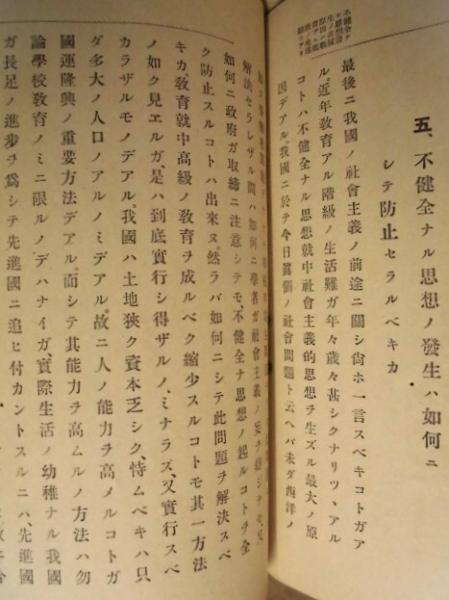 五、不健全ナル思想ノ發生ハ如何ニ
シテ防止セラルベキカ
不健全ナ
ル思想發
最後ニ我國ノ社會主義ノ前途ニ關シ尙ホ一言スベキコトガア
ル。近年教育アル階級ノ生活難ガ年々歲々甚シクナリツヽアル
コトハ不健全ナル思想就中社會主義的思想ヲ生ズル最大ノ原
因デアル。我國ニ於テ今日眞個ノ社會問題ト云ヘバ未ダ西洋ノ
解決セラレザル間ハ如何ニ學者ガ社會主義ノ
如何ニ政府ガ取締ニ注意シテモ、不健全ナル思想ノ起ルコトヲ全
ク防止スルコトハ出來ヌ。然ラバ如何ニシテ此問題ヲ解決スベ
キカ。敎育就中高級ノ敎育ヲ成ルベク縮少スルコトモ其一方法
ノ如ク見エルガ、是ハ到底實行シ得ザルノミナラズ、又實行スベ
カラザルモノデアル。我國ハ土地狹ク資本乏シク、恃ムベキハ只
ダ多大ノ人口ノアルノミデアル。故ニ人ノ能力ヲ高メルコトガ
國運隆興ノ重要方法デアル。而シテ其能力ヲ高ムルノ方法ハ勿
論學校敎育ノミニ限ルノデハナイガ、實際生活ノ幼稚ナル我國
ガ長足ノ進步ヲ爲シテ先進國ニ追ヒ付カントスルニハ、先進國